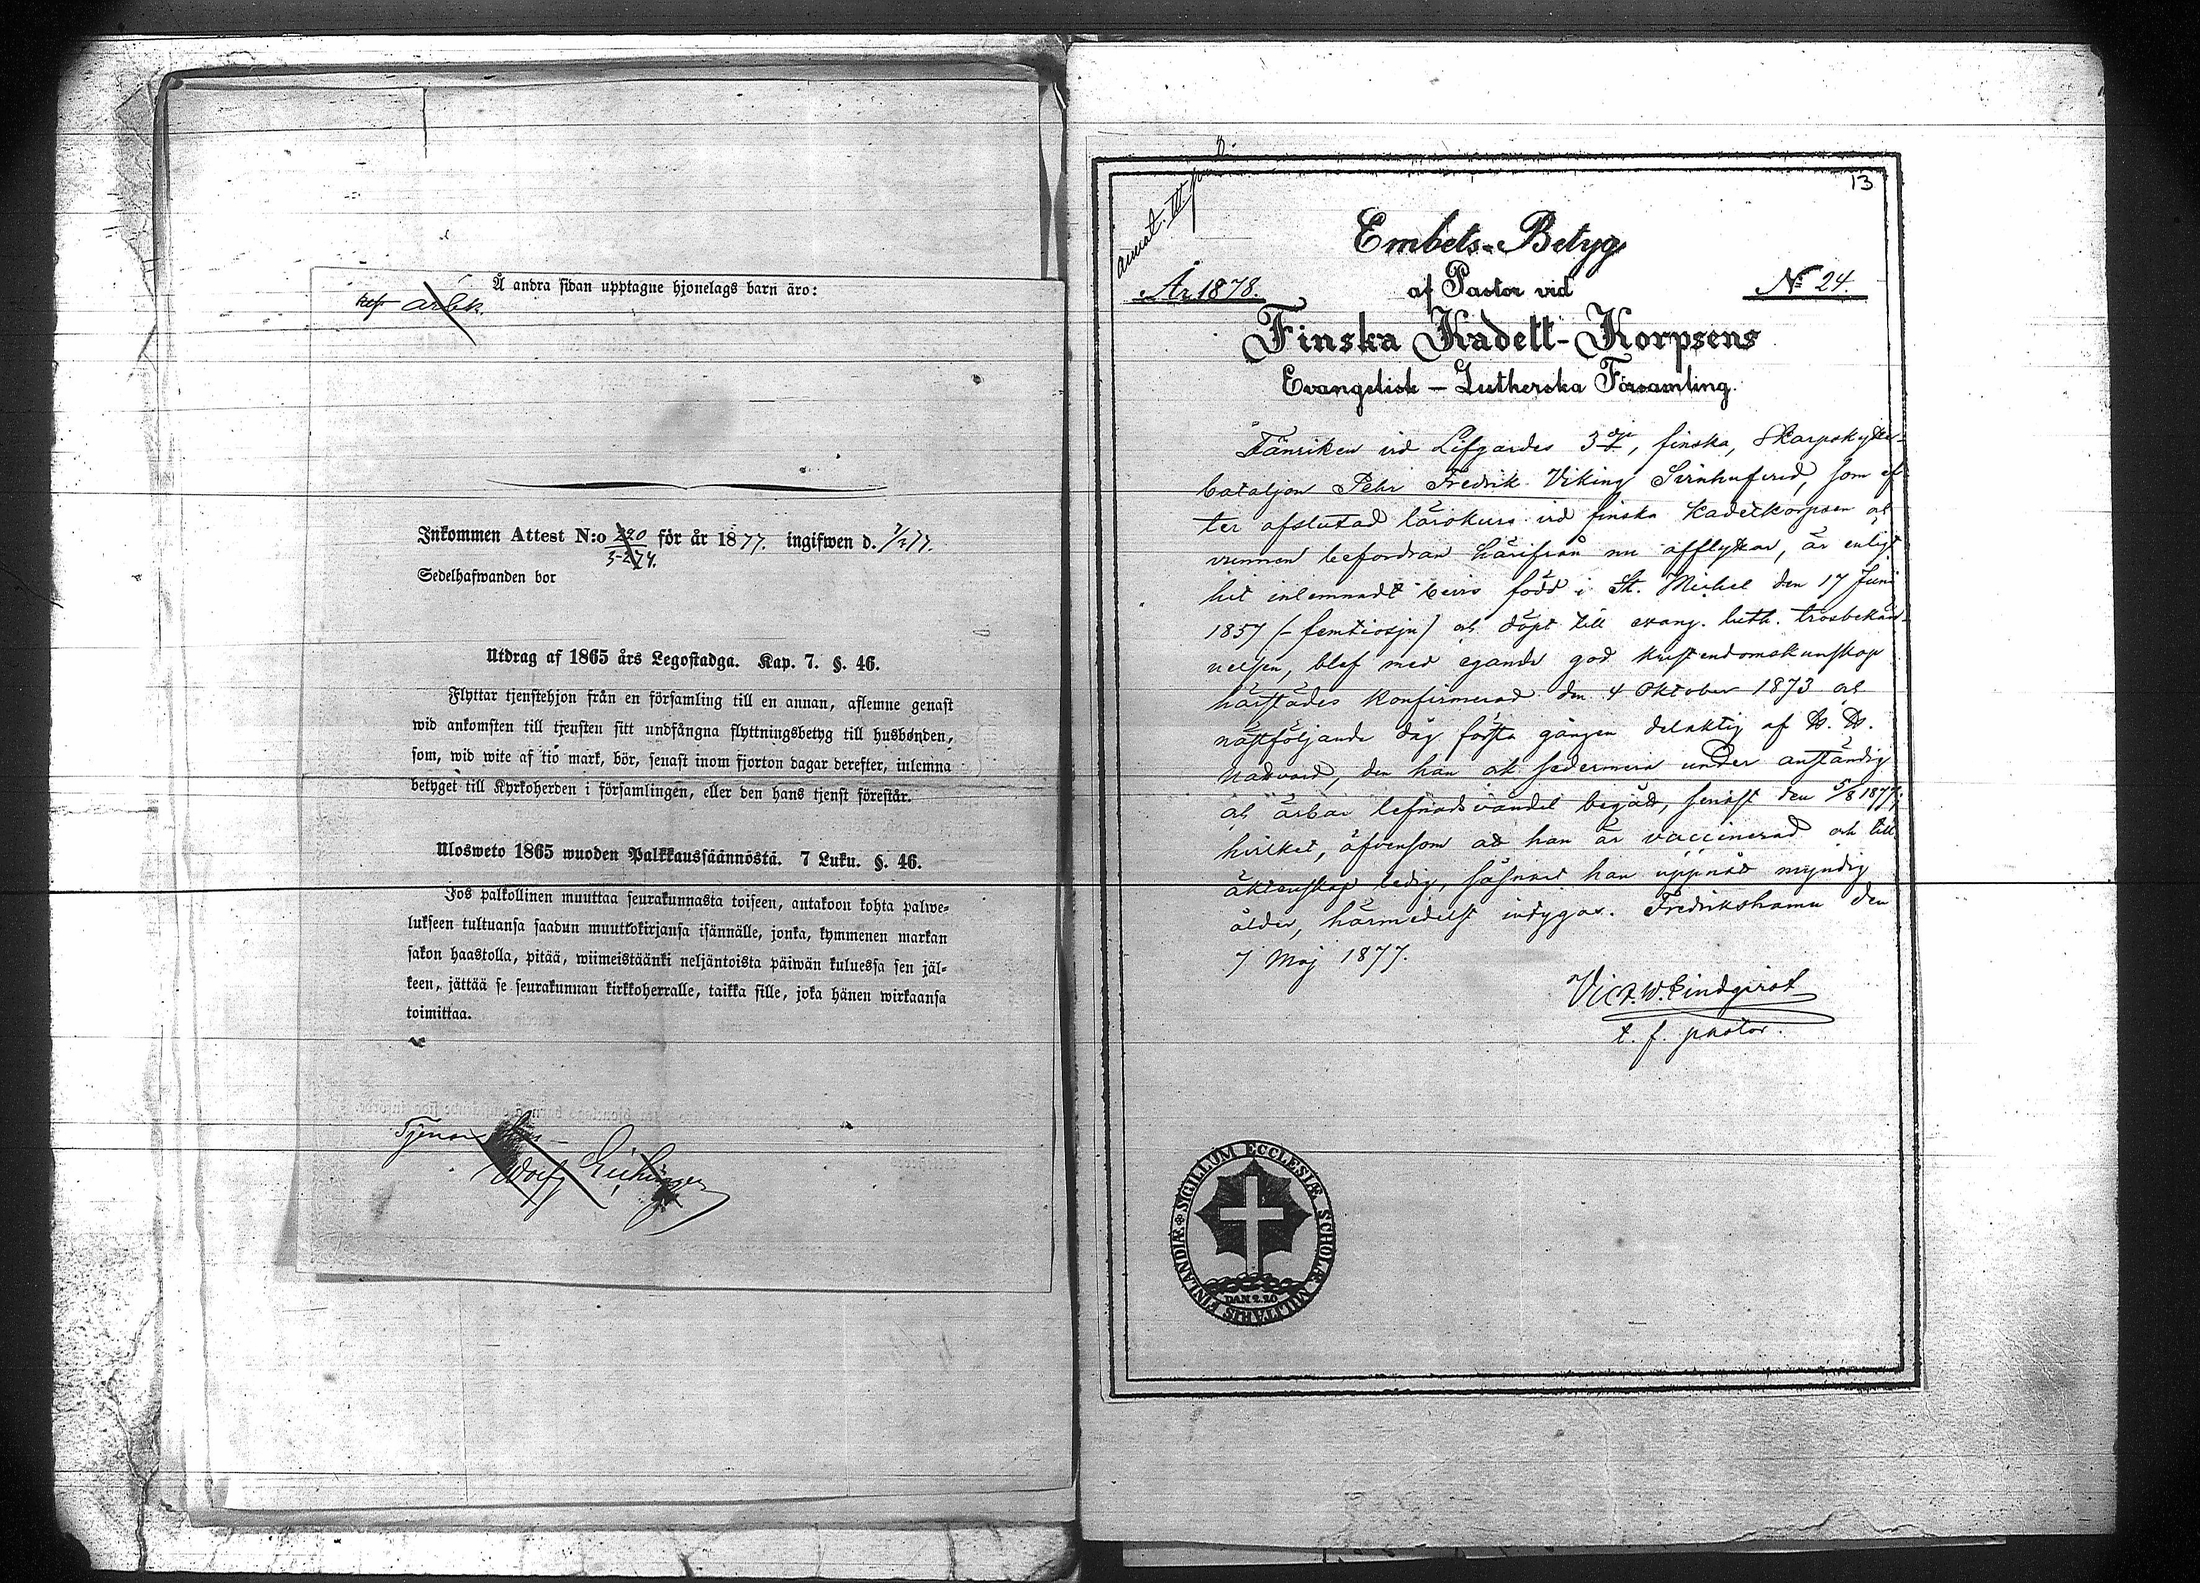 Å andra sidan upptagne hjonelags barn äro:
arbk.
Inkommen Attest N:o 220 för år 1877. ingifwen d.
Sedelhafwanden bor
Utdrag af 1865 års Legostadga. Kap. 7. §. 46.
Flyttar tjenstehjon från en församling till en annan, aflemne genast
wid ankomsten till tjensten sitt undfångna flyttningsbetyg till husbonden,
som, wid wite af tio mark, bör, senast inom fjorton dagar derefter, inlemna
betyget till Kyrkoherden i församlingen, eller den hans tjenst förestår.
Ulosweto 1865 wuoden Palkkaussäännöstä. 7 Luku. §. 46.
Jos palkollinen muuttaa seurakunnasta toiseen, antakoon kohta palwe-
lukseen tultuansa saadun muuttokirjansa isännälle, jonka, kymmenen markan
sakon haastolla, pitää, wiimeistäänki neljäntoista päiwän kuluessa sen jäl-
keen, jättää se seurakunnan kirkkoherralle, taikka sille, joka hänen wirkaansa
toimittaa.
13
Embets-Betyg
År 1878.
af Pastor vid
No 24.
Finska Kadett-Korpsens
Evangelisk – Lutherska Församling.
Fänriken vid Lifgardes 3dje, finska, Skarpskytte-
bataljon Pehr Fredrik Viking Svinhufvud, som ef-
ter afslutad lärokurs vid finska Kadettkorpsen och
vunnen befordran härifrån nu afflyttar, är enligt
hit inlemnadt bevis född i St. Michel den 17 Juni
1857 (– femtiosju) och döpt till evang. luth. trosbekän-
nelsen, blef med egande god kristendomskunskap
härstädes konfirmerad den 4 Oktober 1873 och
nästföljande dag första gången delaktig af H. H.
Nattvard, den han ock sedermera under anständig
och ärbar lefnadsvandel begått, senast den 5/8 1877;
hvilket, äfvensom att han är vaccinerad och till
äktenskap ledig, såsnart han uppnått myndig
ålder, härmedelst intygas. Fredrikshamn den
7 Maj 1877.
Vict. W. Lindqvist
t. f. pastor.
SIGILLUM ECCLESIÆ SCHOLÆ MILITARIS FINLANDIÆ
DAN 2.20